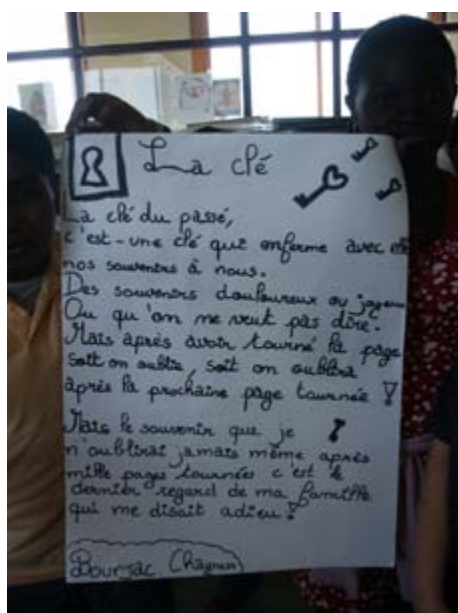 La clé
La clé du passé,
c'est-une clé qui enferme avec elle
nos souvenirs à nous.
Des souvenirs douloureux ou joyeux
Ou qu'on ne veut pas dire.
Mais après avoir tourné la page
soit on oublie, soit on oublira
après la prochaine page tournée !
Mais le souvenir que je
n'oublirai jamais même après
mille pages tournées c'est le
dernier regard de ma famille
qui me disait adieu !